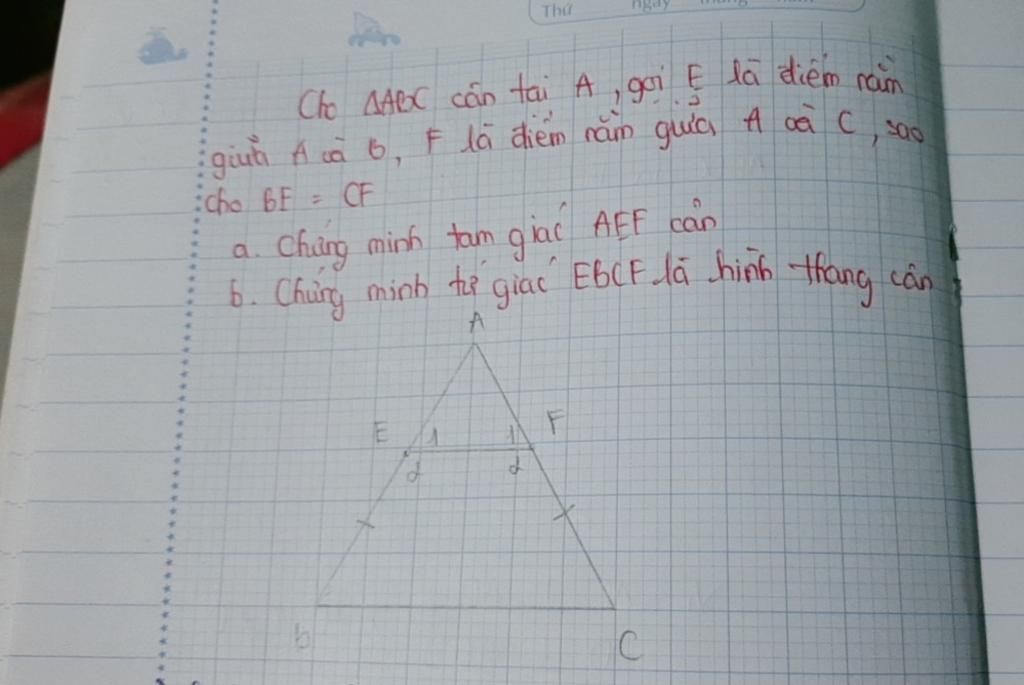 Thứ ngày tháng năm
Cho ΔABC cân tại A, gọi E là điểm nằm
giữa A và B, F là điểm nằm giữa A và C, sao
cho BE = CF
a. Chứng minh tam giác AEF cân
b. Chứng minh tứ giác EBCF là hình thang cân
A
E 1 1 F
2 2
B C